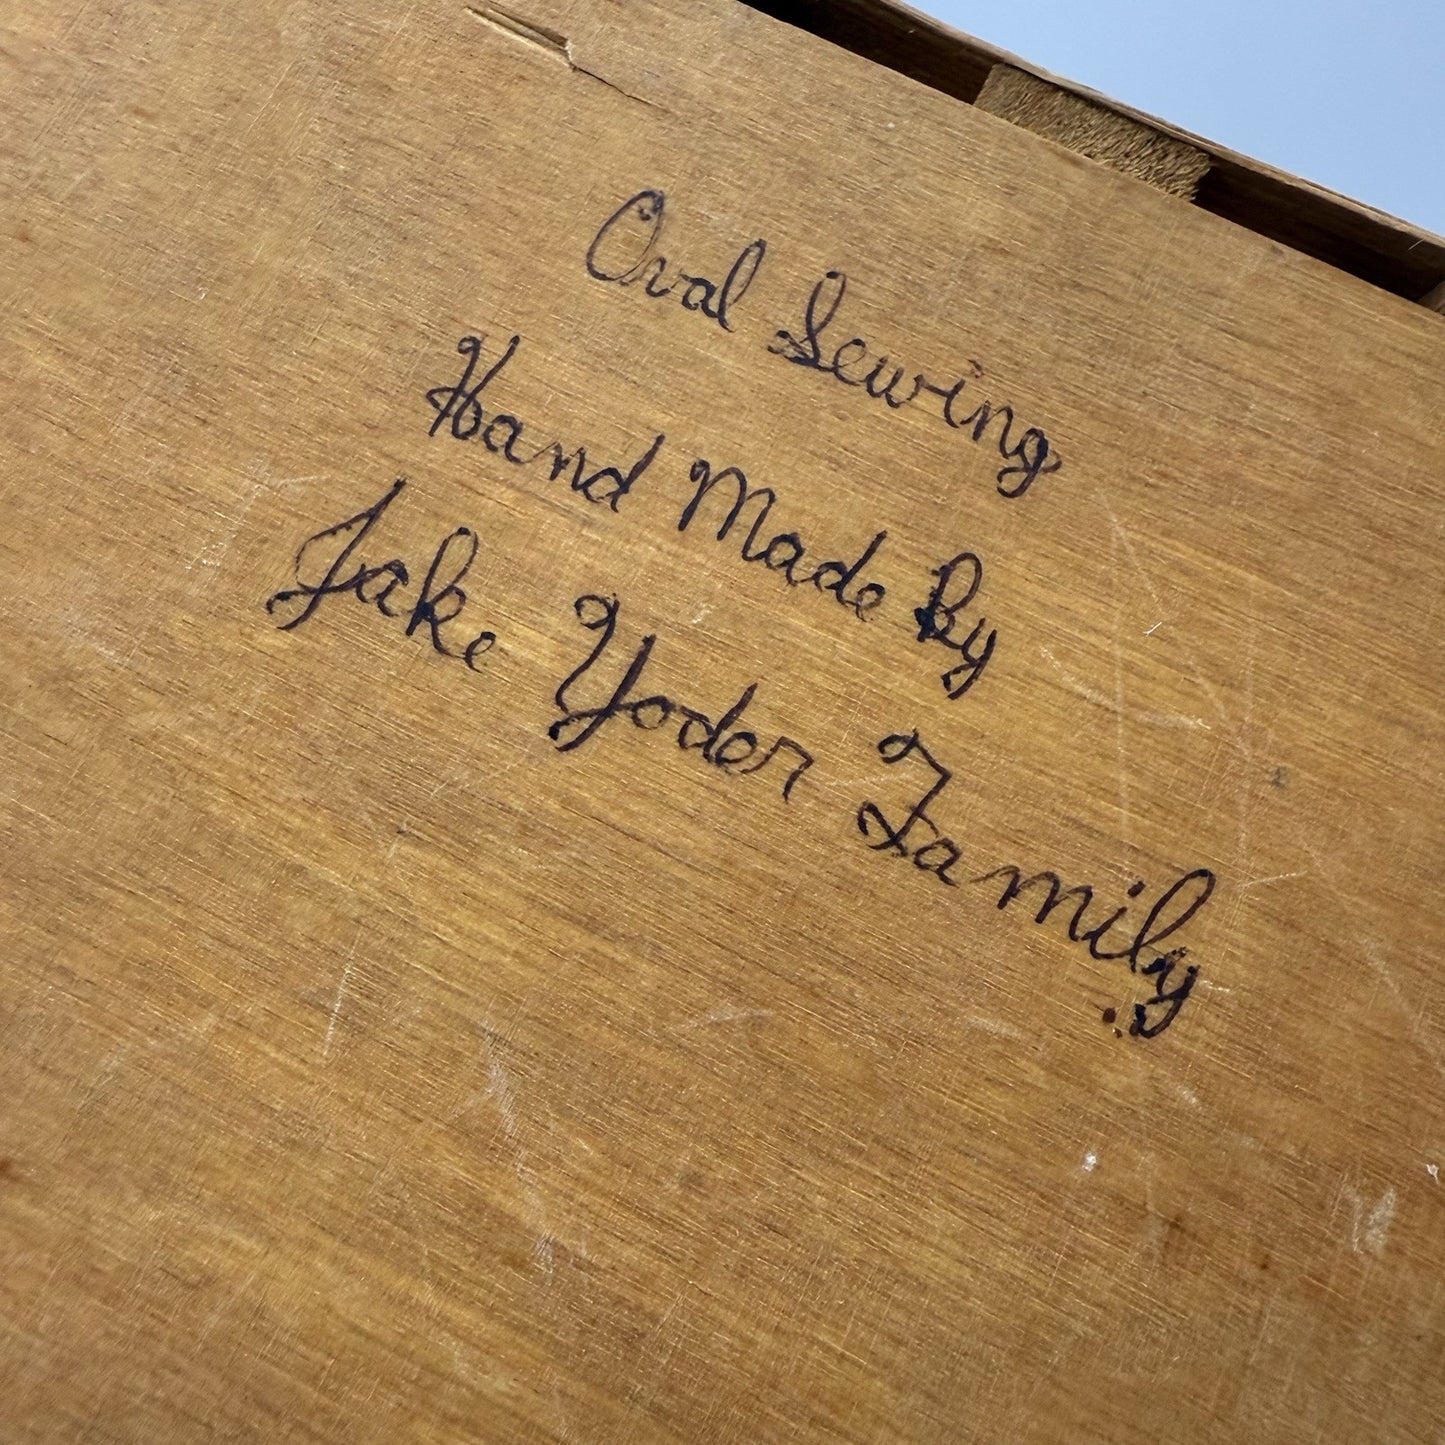 Oval Sewing
Hand Made By
Jake Yoder Family